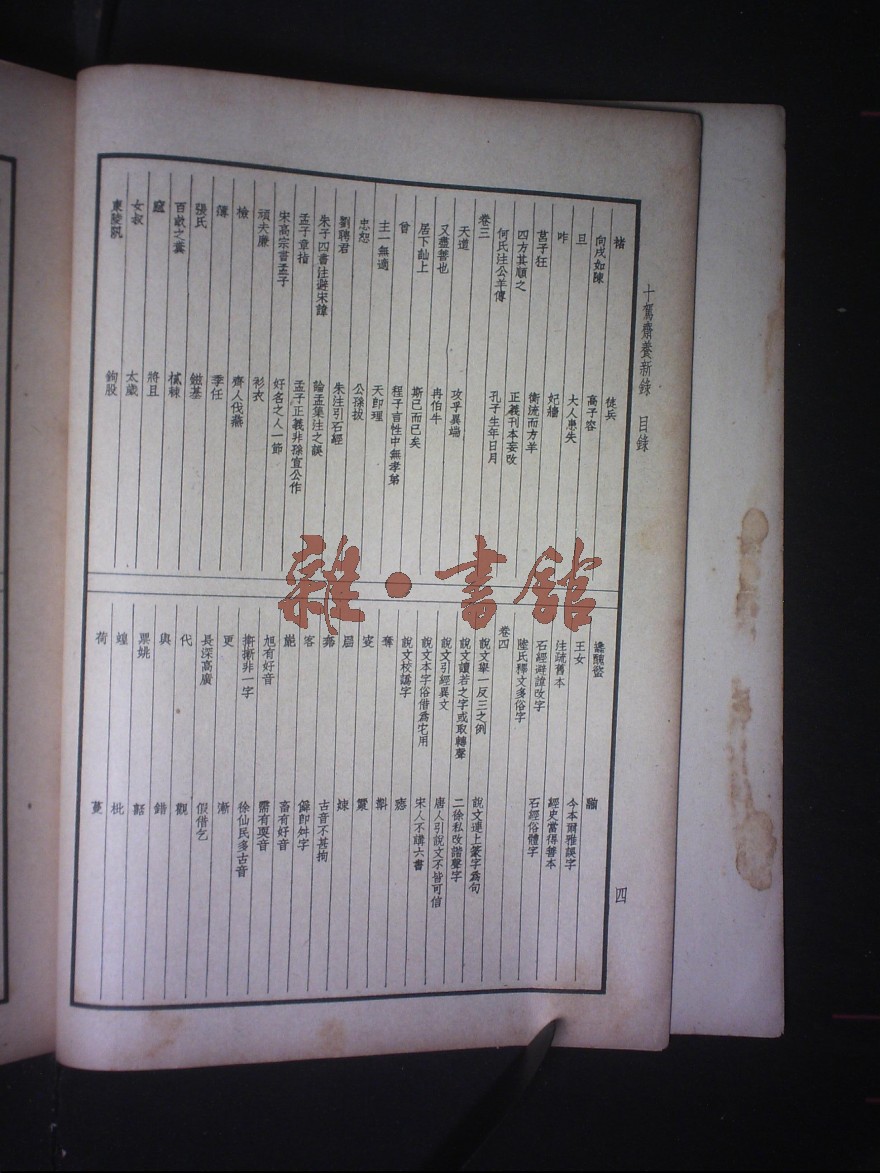 十駕齋養新錄 目錄
四
褚 徒兵
向戌如陳 高子容
旦 大人患失
咋 妃嬙
莒子狂 衡流而方羊
四方其順之 正義刊本妄改
何氏注公羊傳 孔子生年日月
卷三
天道 攻乎異端
又盡善也 冉伯牛
居下訕上 斯已而已矣
曾 程子言性中無孝弟
主一無適 天即理
忠恕 公孫拔
劉聘君 朱注引石經
朱子四書注避宋諱 論孟集注之誤
孟子章指 孟子正義非孫宣公作
宋高宗書孟子 好名之人一節
頑夫廉 衫衣
檢 齊人伐燕
簿 季任
張氏 鎡基
百畝之糞 樲棘
窆 將且
女叔 太歲
東陵 鉤股
王女 今本爾雅誤字
注疏舊本 經史當得善本
石經避諱改字 石經俗體字
陸氏釋文多俗字
卷四
說文舉一反三之例 說文連上篆字為句
說文讀若之字或取轉聲 二徐私改諧聲字
說文引經異文 唐人引說文不皆可信
說文本字俗借為它用 宋人不講六書
說文校譌字
客 古音不甚拘
能 餘即艅字
旭有好音 畜有好音
需有耎音
更 徐仙民多古音
長深高廣 漸
代 假借乞
與 觀
票姚 錯
蝗 話
荷 枇
蔓